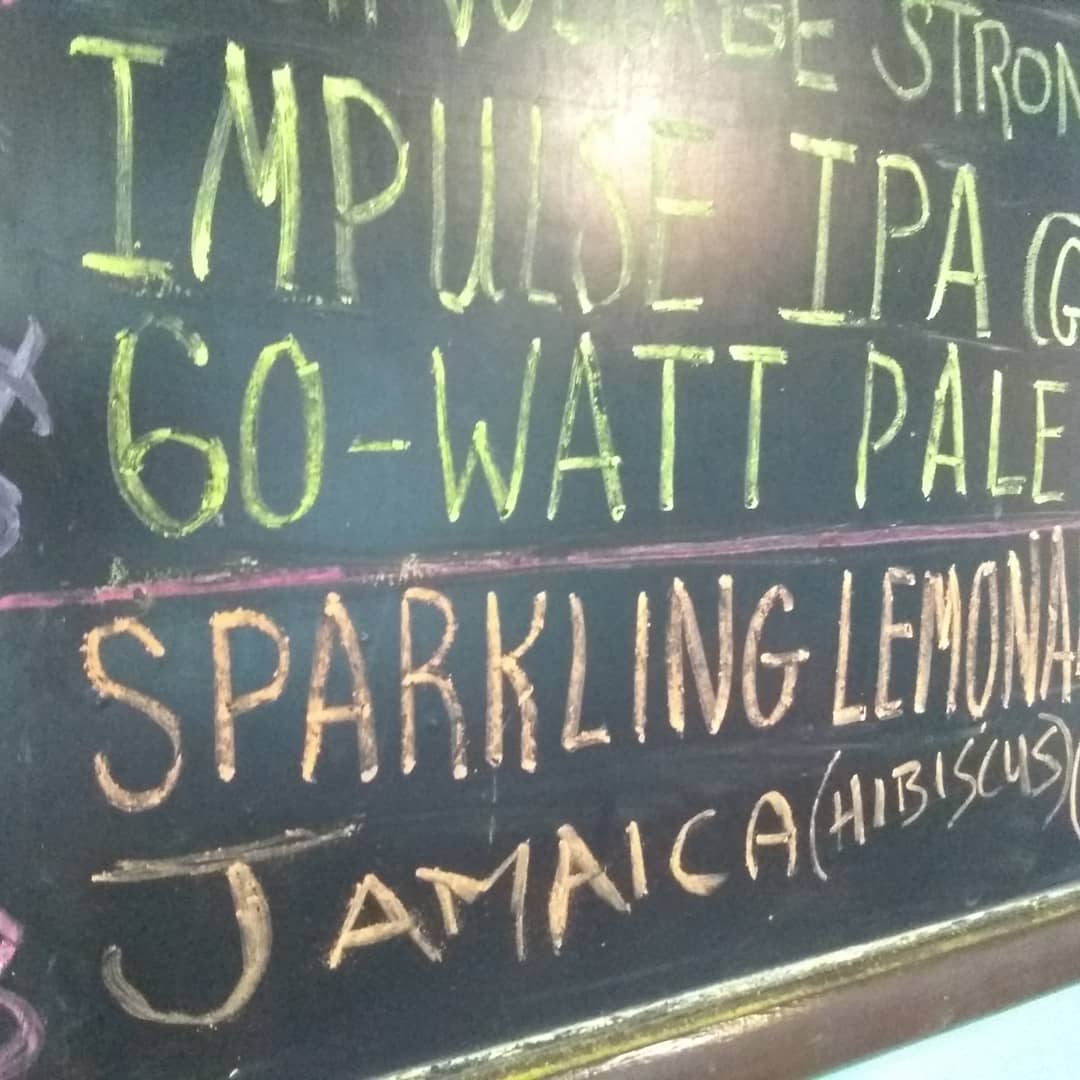 STRON
IMPULSE IPA @
60-WATT PALE
SPARKLING LEMONA
JAMAICA (HIBISCUS) (